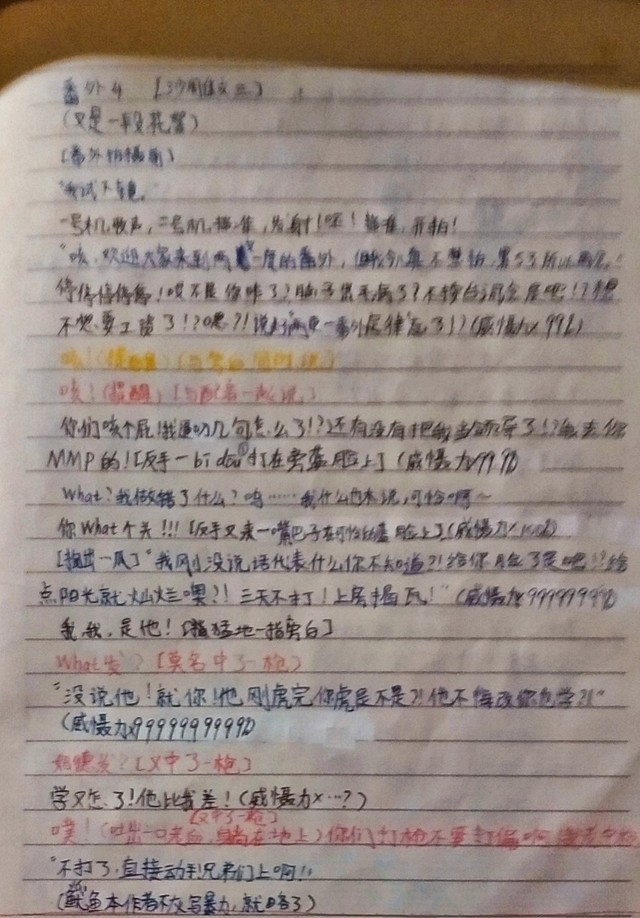 番外4 【沙雕作文三】
(又是一段花絮)
【番外拍摄前】
"我试下镜。"
一号机收声，二号机瞄准，发射！呸！瞄准，开拍！
"咳，欢迎大家来到两 一度的番外，但我今 集不想拍
停停停停停！哎不是你咋了？脑子 毛病了？不按台词念是吧！？想
不想要工资了！？嗯？！说好 一番外 了！？(威慑力x99亿)
咳！(提醒)【与旁白同时说】
咳！(提醒)【与配音一起说】
你们咳个屁！我逼叨几句怎么了！？还有没有把我当领导了！？我去你
MMP的！【反手一bi dou 打在旁 脸上】(威慑力x99.9亿)
What？我做错了什么？呜……我什么也没说，可怜啊～
你What个头！！！【反手又来一嘴巴子在可怜 脸上】(威慑力x100亿)
【 一瓜】"我刚没说话代表什么你不知道？！给你脸了是吧！？给
点阳光就灿烂噢？！三天不打！上房揭瓦！"(威慑力x99999999亿)
我，我，是他！【 猛地一指旁白】
What发？【莫名中了一枪】
"没说他！就你！他刚虎完你虎是不是？！他不悔改你也学？！"
(威慑力x9999999999亿)
妈德发？【又中了一枪】
学又怎了！他比我差！(威慑力x…？)
【又中了一枪】
噗！(吐出一口老血，躺在地上)你们打枪不要打偏啊
"不打了，直接动手！兄弟们上啊！！
(鱿鱼本作者不太写暴力，就略了)